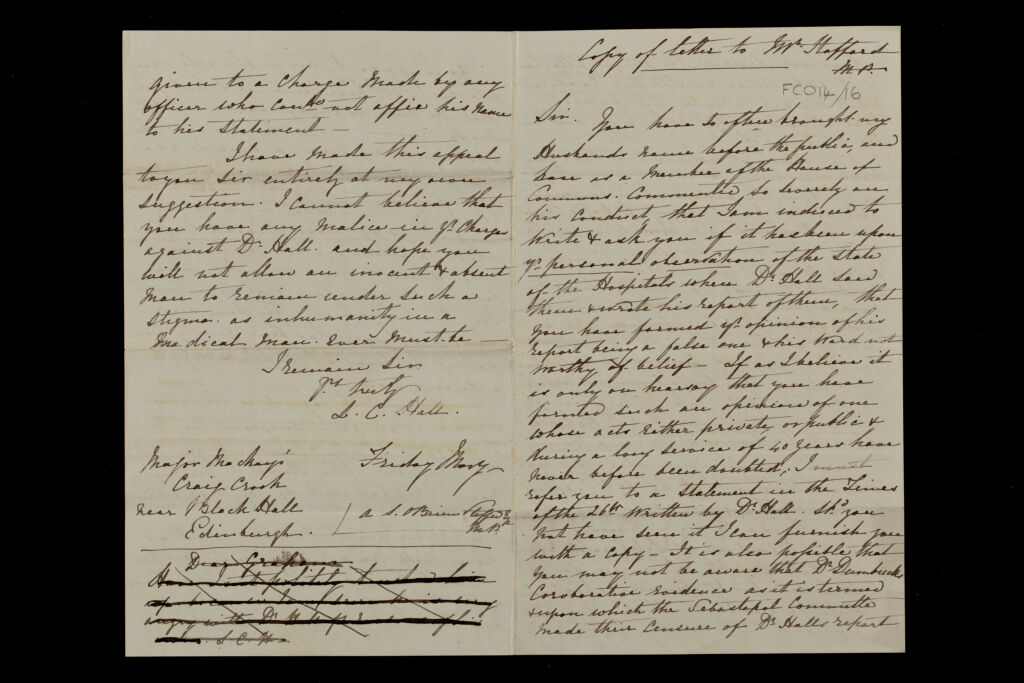 given to a charge made by any
officer who could not affix his name
to his statement —
I have made this appeal
to you Sir entirely at my own
suggestion. I cannot believe that
you have any malice in yr. charges
against Dr. Hall. and hope you
will not allow an inocent & absent
man to remain under such a
stigma. as inhumanity in a
Medical Man. ever must be —
I remain Sir
yrs truly
L. C. Hall.
Major Mackay's
Craig Crook
near Black Hall
Edinburgh.
Friday Morg
A S. O'Brien Stafford Esq
M.P.
Dear Graham
S. C. H
Copy of letter to Mr. Stafford
M P.
FCO14/16
Sir. You have so often brought my
Husbands name before the public, and
have as a Member of the House of
Commons. Commented so severely on
his conduct, that I am induced to
write & ask you if it has been upon
yr. personal observation of the state
of the Hospitals when Dr. Hall saw
them & wrote his report of them, that
you have formed yr. opinion of his
report being a false one & his word not
worthy of belief — If as I believe it
is only on hearsay that you have
formed such an opinion of one
whose acts either private or public &
during a long service of 40 years have
never before been doubted, I must
refer you to a statement in the Times
of the 26th written by Dr. Hall. Shd. you
not have seen it I can furnish you
with a copy — It is also possible that
you may not be aware that Dr. Dumbrecks
Coroborative Evidence as it is termed
& upon which the Sebastopol Committe
made their censure of Dr. Halls report